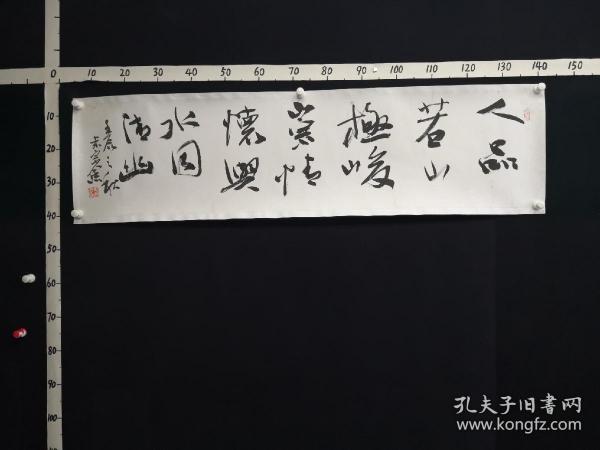 10 20 30 40 50 60 70 80 90 100 110 120 130 140 150
10
20
30
40
50
60
70
80
90
100
人品
若山
極峻
崇情
懷與
水同
清幽
之秋
孔夫子旧書网
www.kongfz.com